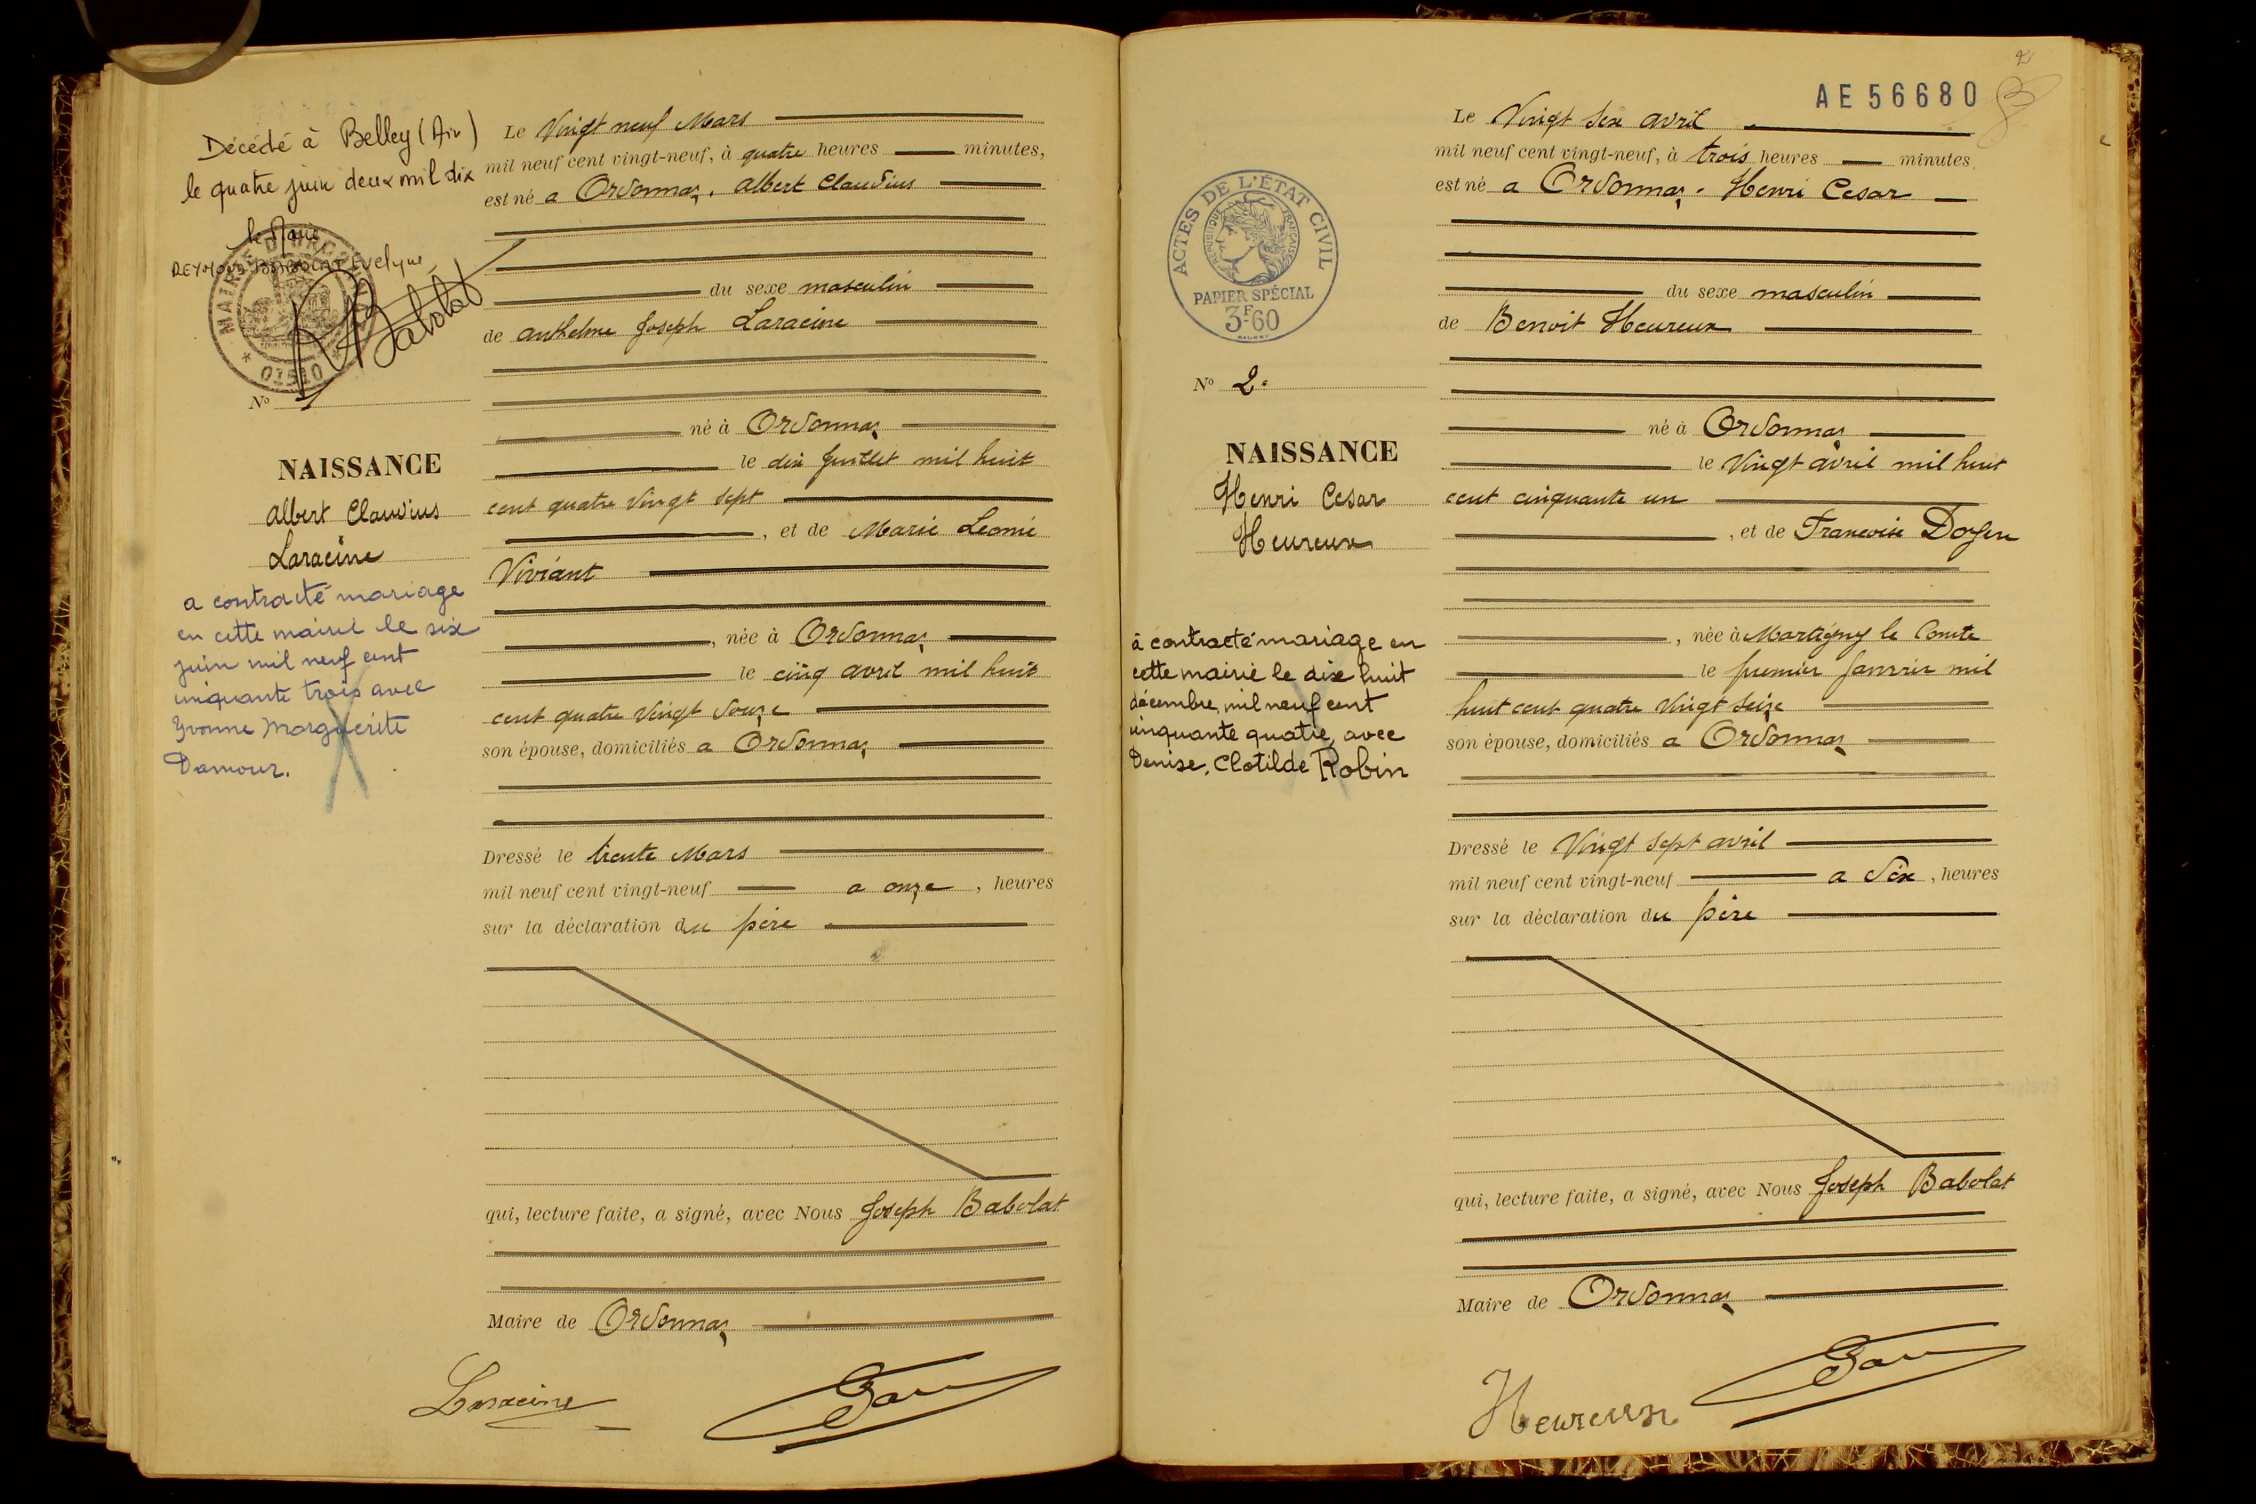 Décédé à Belley (Ain)
le quatre juin deux mil dix
le Maire
Evelyne
Babolat
01510
No 1
NAISSANCE
Albert Claudius
Laracine
a contracté mariage
en cette mairie le six
juin mil neuf cent
cinquante trois avec
Yvonne Marguerite
Damour.
Le Vingt neuf Mars
mil neuf cent vingt-neuf, à quatre heures minutes,
est né a Ordonnaz, Albert Claudius
du sexe masculin
de Anthelme Joseph Laracine
né à Ordonnaz
le dix Juillet mil huit
cent quatre vingt sept
, et de Marie Leonie
Viviant
, née à Ordonnaz
le cinq avril mil huit
cent quatre vingt douze
son épouse, domiciliés a Ordonnaz
Dressé le trente Mars
mil neuf cent vingt-neuf a onze , heures
sur la déclaration du père
qui, lecture faite, a signé, avec Nous Joseph Babolat
Maire de Ordonnaz
Laracine
AE 56680
ACTES DE L'ÉTAT CIVIL
RÉPUBLIQUE FRANÇAISE
PAPIER SPÉCIAL
3F60
No 2.
NAISSANCE
Henri Cesar
Heureux
à contracté mariage en
cette mairie le dix huit
décembre, mil neuf cent
cinquante quatre, avec
Denise, Clotilde Robin
Le Vingt Six avril
mil neuf cent vingt-neuf, à trois heures minutes
est né a Ordonnaz. Henri Cesar
du sexe masculin
de Benoit Heureux
né à Ordonnaz
le Vingt avril mil huit
cent cinquante un
, et de Francoise Doyen
, née à Martigny le Comte
le premier Janvier mil
huit cent quatre Vingt seize
son épouse, domiciliés a Ordonnaz
Dressé le Vingt sept avril
mil neuf cent vingt-neuf a dix , heures
sur la déclaration du père
qui, lecture faite, a signé, avec Nous Joseph Babolat
Maire de Ordonnaz
Heureux